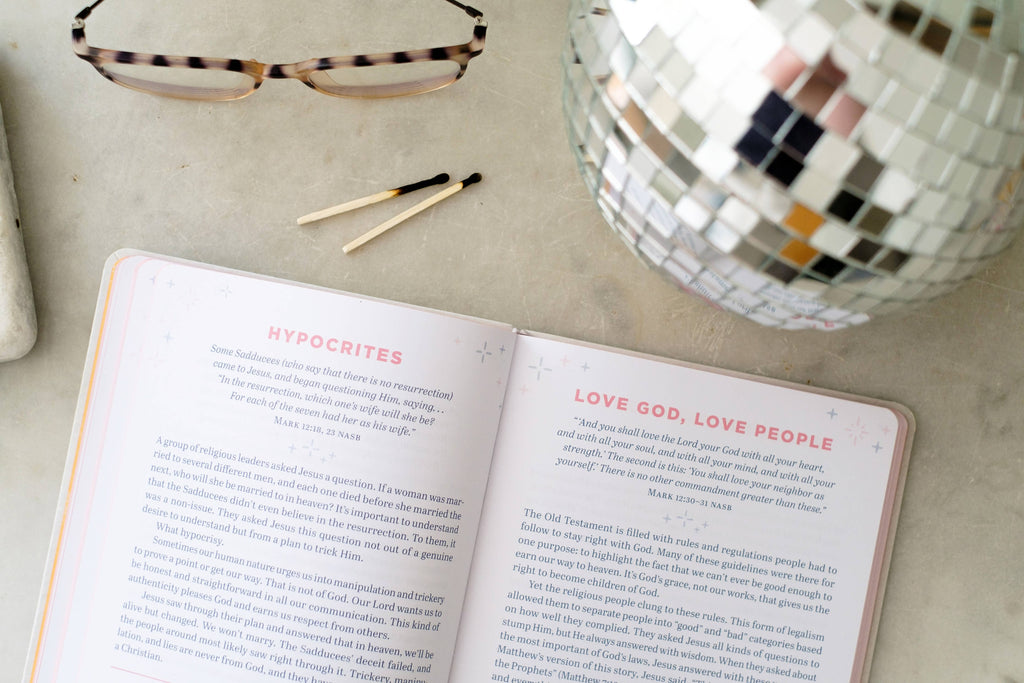 HYPOCRITES
Some Sadducees (who say that there is no resurrection)
came to Jesus, and began questioning Him, saying. . .
"In the resurrection, which one's wife will she be?
For each of the seven had her as his wife."
MARK 12:18, 23 NASB
A group of religious leaders asked Jesus a question. If a woman was mar-
ried to several different men, and each one died before she married the
next, who will she be married to in heaven? It's important to understand
that the Sadducees didn't even believe in the resurrection. To them, it
was a non-issue. They asked Jesus this question not out of a genuine
desire to understand but from a plan to trick Him.
What hypocrisy.
Sometimes our human nature urges us into manipulation and trickery
to prove a point or get our way. That is not of God. Our Lord wants us to
be honest and straightforward in all our communication. This kind of
authenticity pleases God and earns us respect from others.
Jesus saw through their plan and answered that in heaven, we'll be
alive but changed. We won't marry. The Sadducees' deceit failed, and
the people around most likely saw right through it. Trickery, manipu-
lation, and lies are never from God, and they have
a Christian.
LOVE GOD, LOVE PEOPLE
"'And you shall love the Lord your God with all your heart,
and with all your soul, and with all your mind, and with all your
strength.' The second is this: 'You shall love your neighbor as
yourself.' There is no other commandment greater than these."
MARK 12:30–31 NASB
The Old Testament is filled with rules and regulations people had to
follow to stay right with God. Many of these guidelines were there for
one purpose: to highlight the fact that we can't ever be good enough to
earn our way to heaven. It's God's grace, not our works, that gives us the
right to become children of God.
Yet the religious people clung to these rules. This form of legalism
allowed them to separate people into "good" and "bad" categories based
on how well they complied. They asked Jesus all kinds of questions to
stump Him, but He always answered with wisdom. When they asked about
the most important of God's laws, Jesus answered with these
Matthew's version of this story, Jesus said,
the Prophets" (Matthew
and every